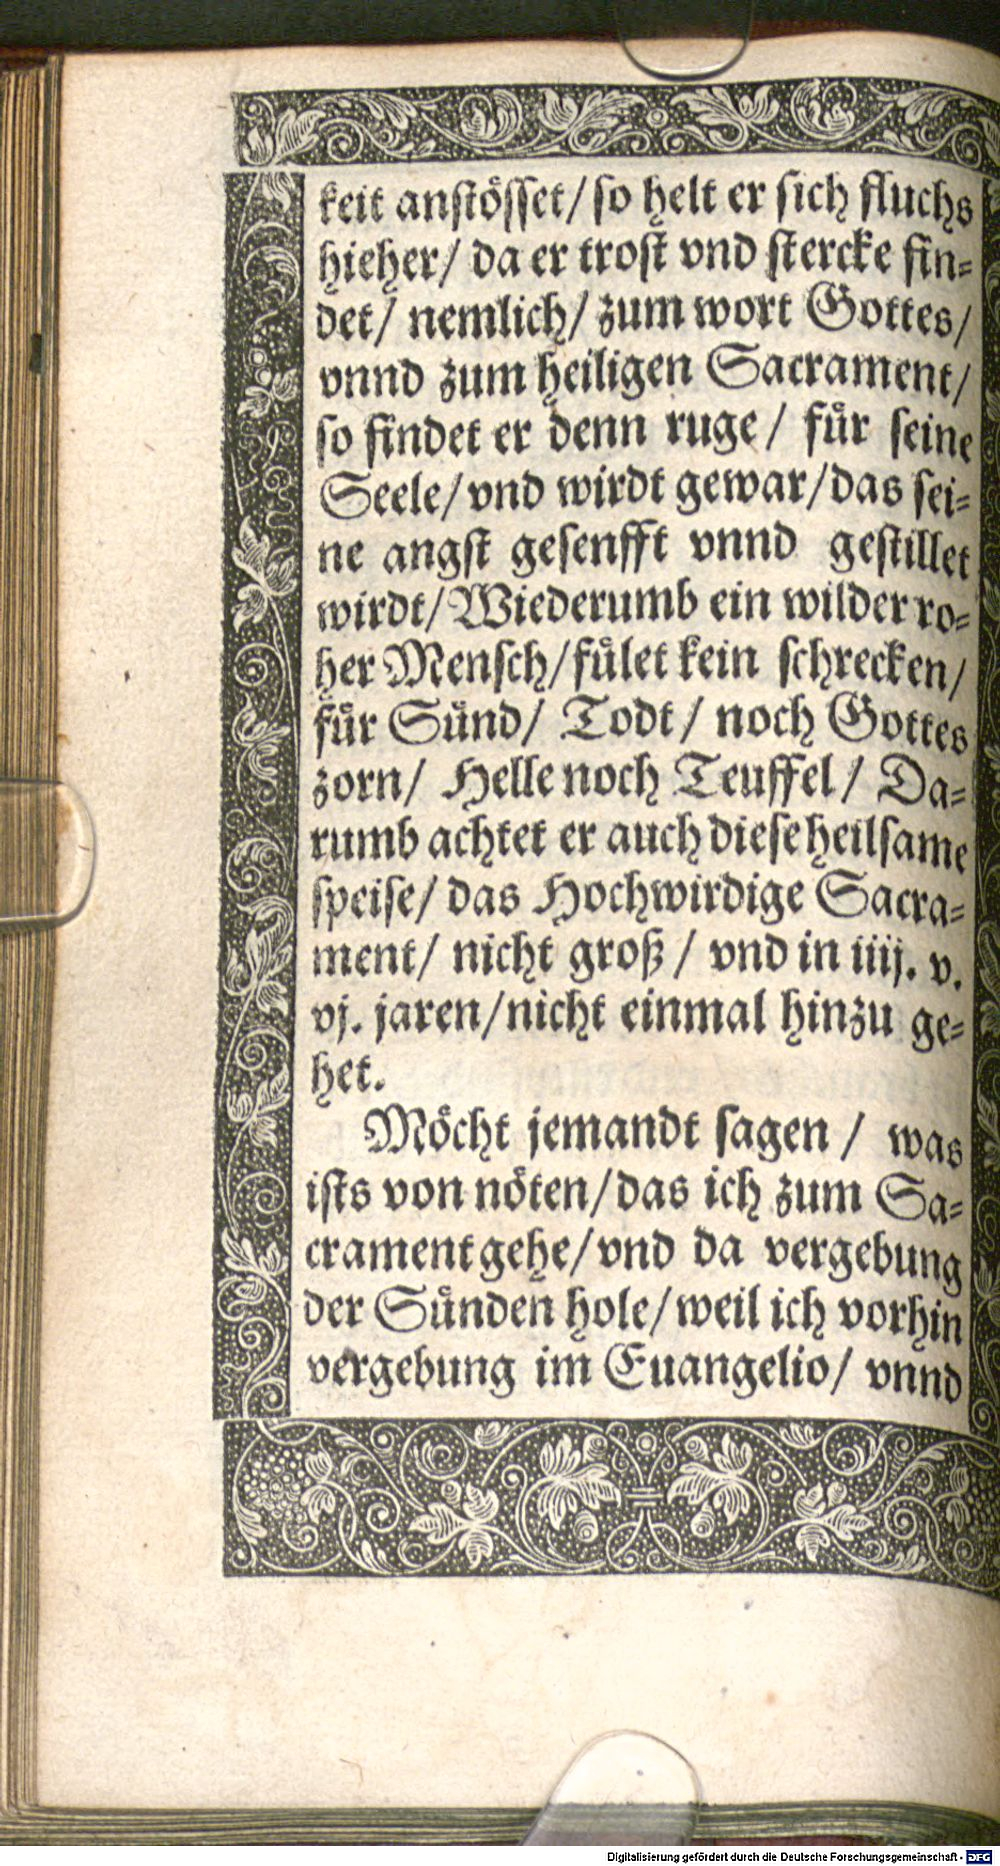 keit anſtöſſet/ ſo helt er ſich fluchs
hieher/ da er troſt vnd ſtercke fin⸗
det/ nemlich/ zum wort Gottes/
vnnd zum heiligen Sacrament/
ſo findet er denn ruge/ fuͤr ſeine
Seele/ vnd wirdt gewar/ das ſei⸗
ne angſt geſenfft vnnd geſtillet
wirdt/ Wiederumb ein wilder ro⸗
her Menſch/ fuͤlet kein ſchrecken/
fuͤr Suͤnd/ Todt/ noch Gottes
zorn/ Helle noch Teuffel/ Da⸗
rumb achtet er auch dieſe heilſame
ſpeiſe/ das Hochwirdige Sacra⸗
ment/ nicht groß/ vnd in iiij. v.
vj. jaren/ nicht einmal hinzu ge⸗
het.
Möcht jemandt ſagen/ was
iſts von nöten/ das ich zum Sa⸗
crament gehe/ vnd da vergebung
der Suͤnden hole/ weil ich vorhin
vergebung im Euangelio/ vnnd
Digitalisierung gefördert durch die Deutsche Forschungsgemeinschaft - DFG